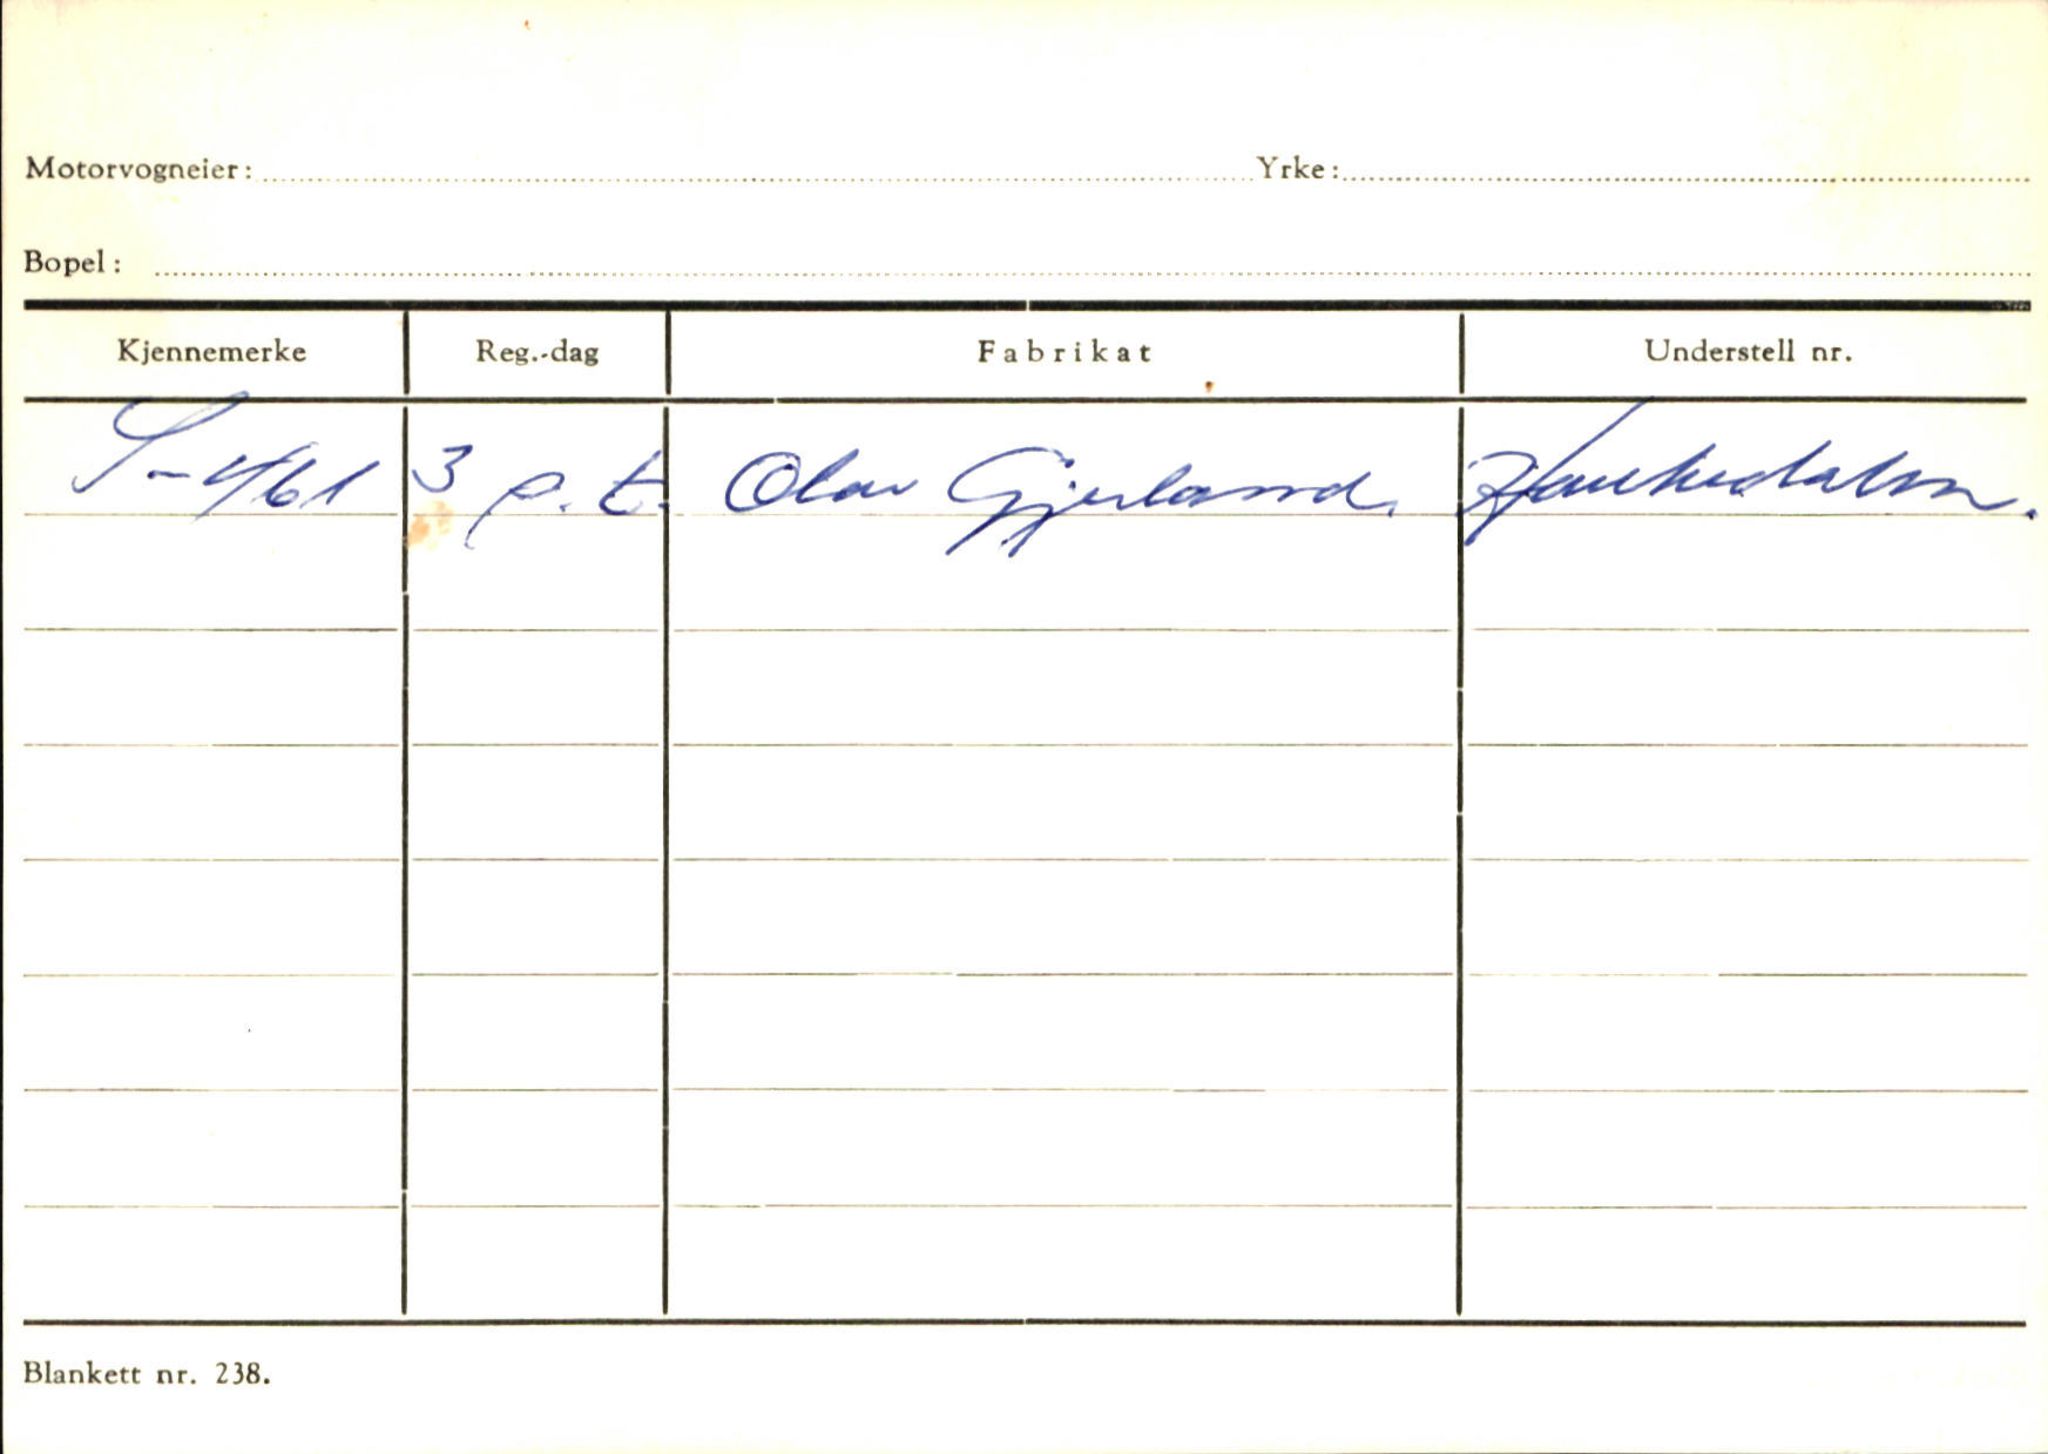 Motorvogneier: Yrke:
Bopel:
Kjennemerke Reg.-dag Fabrikat Understell nr.
S-4613 p.t. Olav Gjerland. Haukedalen.
Blankett nr. 238.